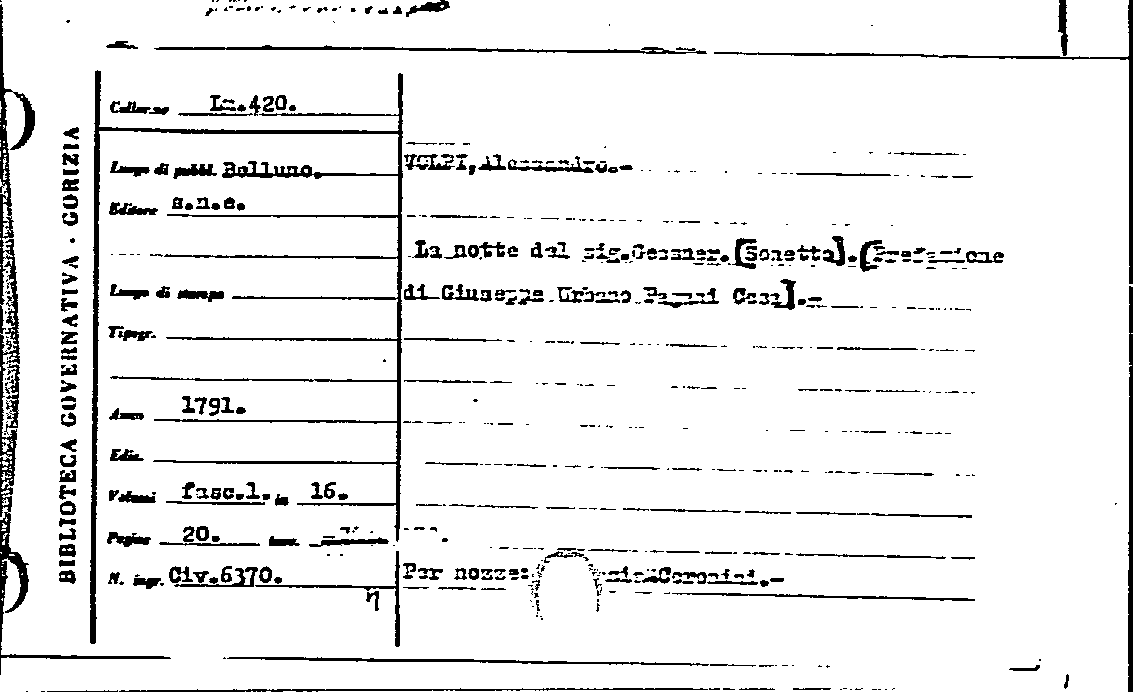 BIBLIOTECA GOVERNATIVA · GORIZIA
Collocaz. Lz.420.
Luogo di pubbl. Belluno.
Editore s.n.e.
Luogo di stampa
Tipogr.
Anno 1791.
Ediz.
Volumi fasc.1. in 16.
Pagine 20.
N. ingr. Civ.6370.
VOLPI,Alessandro.-
La notte del sig.Gessner.[Sonetto].[Prefazione
di Giuseppe Urbano Pagani Cesa].-
Per nozze: Coronini.-